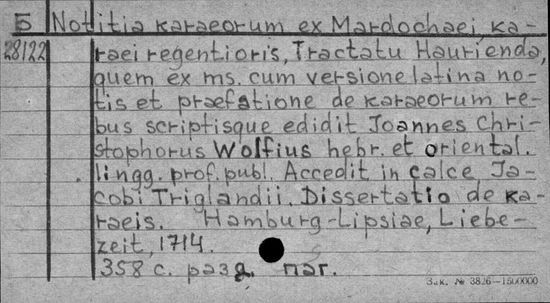 Б Notitia karaeorum ex Mardochaei, ka-
28122 raei regentioris, Tractatu Haurienda,
quem ex ms. cum versione latina no-
tis et praefatione de karaeorum re-
bus scriptisque edidit Joannes Chri-
stophorus Wolfius hebr. et oriental.
lingg. prof. publ. Accedit in calce Ja-
cobi Triglandii, Dissertatio de ka-
raeis. Hamburg-Lipsiae, Liebe-
zeit, 1714.
358 с. разд. паг.
Зак. № 3826—1500000